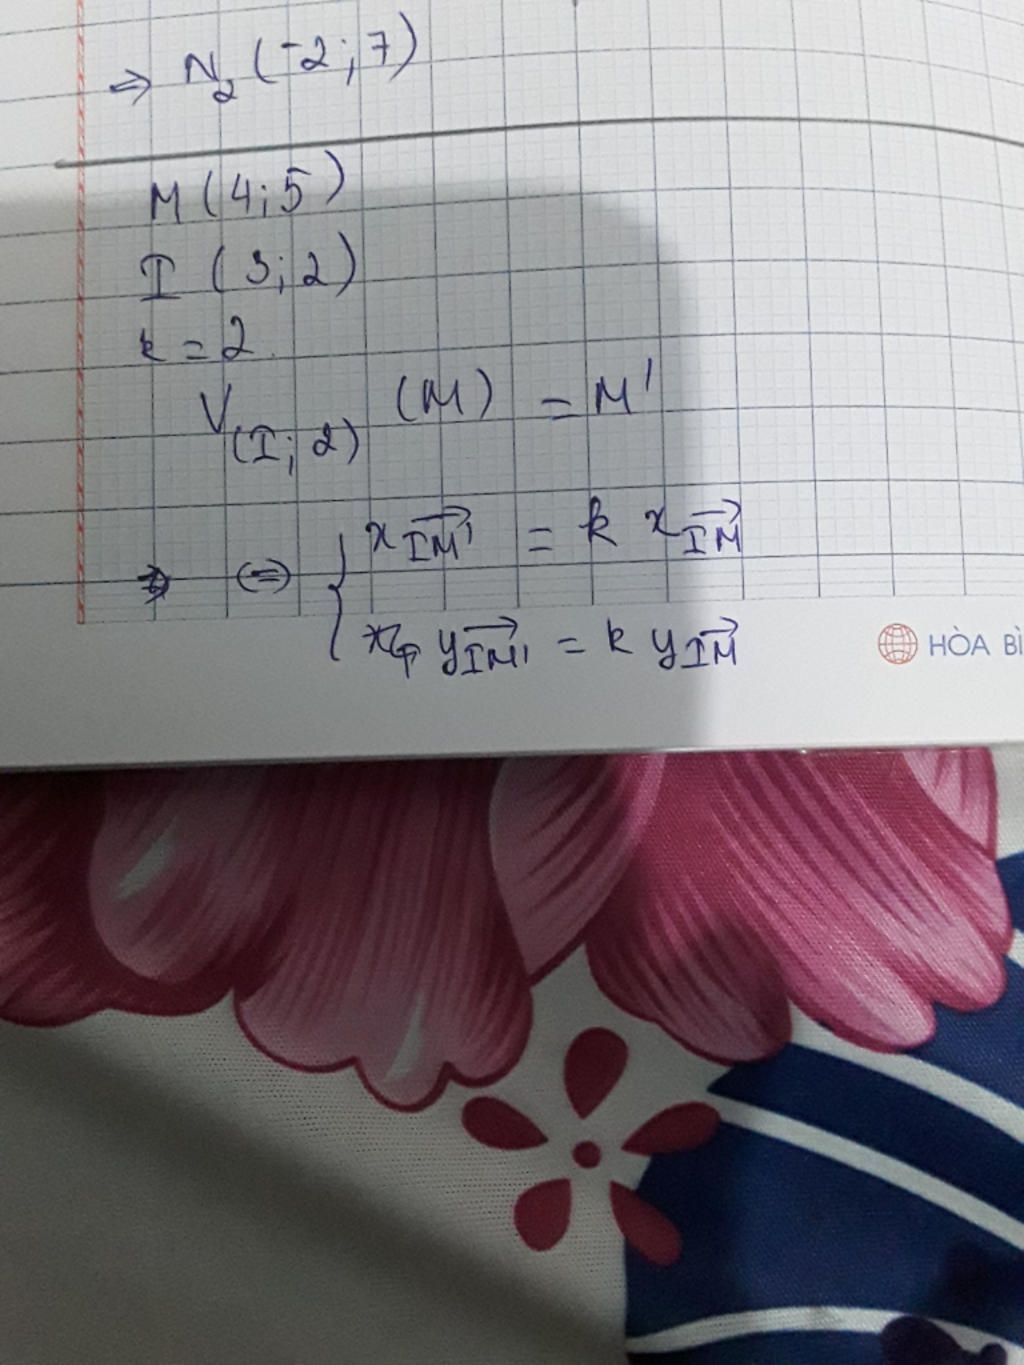 ⇒ N₂ (-2; 7)
M (4; 5)
I (3; 2)
k = 2.
V(I; 2) (M) = M'
⇔ { x IM' = k x IM
y IM' = k y IM
HÒA BÌ